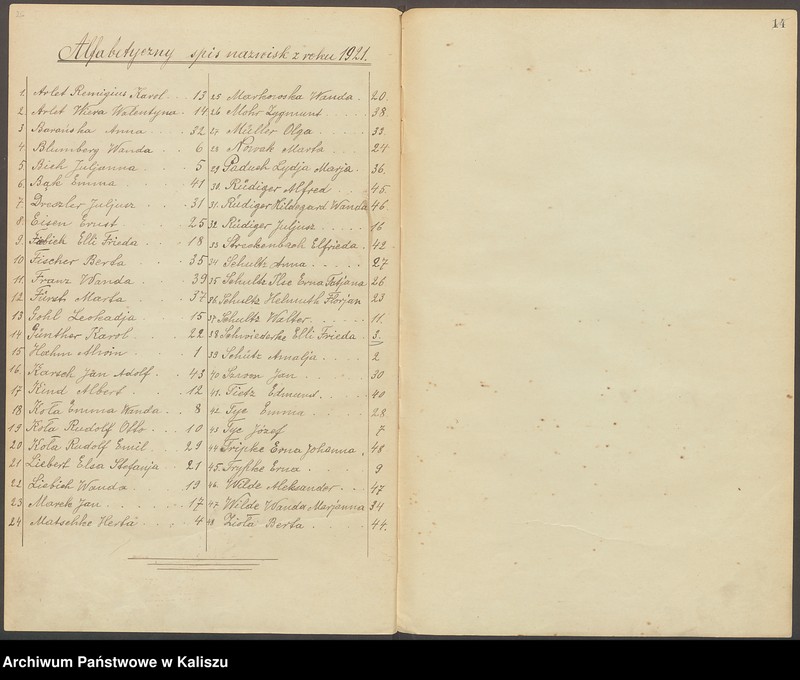 14
Alfabetyczny spis nazwisk z roku 1921.
1. Arlet Remigius Karol 13
2. Arlet Wiera Walentyna 14
3 Barańska Anna 32
4 Blumberg Wanda 6
5. Bich Juljanna 5
6. Bąk Emma 41
7. Drexler Juljusz 31
8. Eisen Ernst 25
9. Fabich Elli Frieda 18
10 Fischer Berta 35
11. Franz Wanda 39
12 Fürst Marta 37
13 Gohl Leokadja 15
14 Günther Karol 22
15 Hahm Alwin 1
16 Karsch Jan Adolf 43
17 Kind Albert 12
18 Kola Emma Wanda 8
19 Kola Rudolf Otto 10
20 Kola Rudolf Emil 29
21 Liebert Elsa Stefanja 21
22 Liebich Wanda 19
23 Marek Jan 17
24 Matschke Herta 4
25 Markowska Wanda 20.
26 Mohr Zygmunt 38.
27 Müller Olga 33
28 Nowak Marta 24
29 Paduch Lydja Marja 36.
30. Rüdiger Alfred 45.
31. Rüdiger Hildegard Wanda 46
32. Rüdiger Juljusz 16
33 Streckenbach Elfrieda 42.
34 Schultz Anna 27
35 Schultz Ilse Erna Tatjana 26
36 Schultz Helmuth Florjan 23
37 Schultz Walter 11.
38 Schwiederke Elli Frieda 3.
39 Schütz Amalja 2
40 Jan 30
41. Tietz Edmund 40
42 Tyc Emma 28
43 Tyc Józef 7
44 Tripke Erna Johanna 48
45. Trypke Erna 9
46 Wilde Aleksander 47
47 Wilde Wanda Marjanna 34
48 Ziola Berta 44.
Archiwum Państwowe w Kaliszu